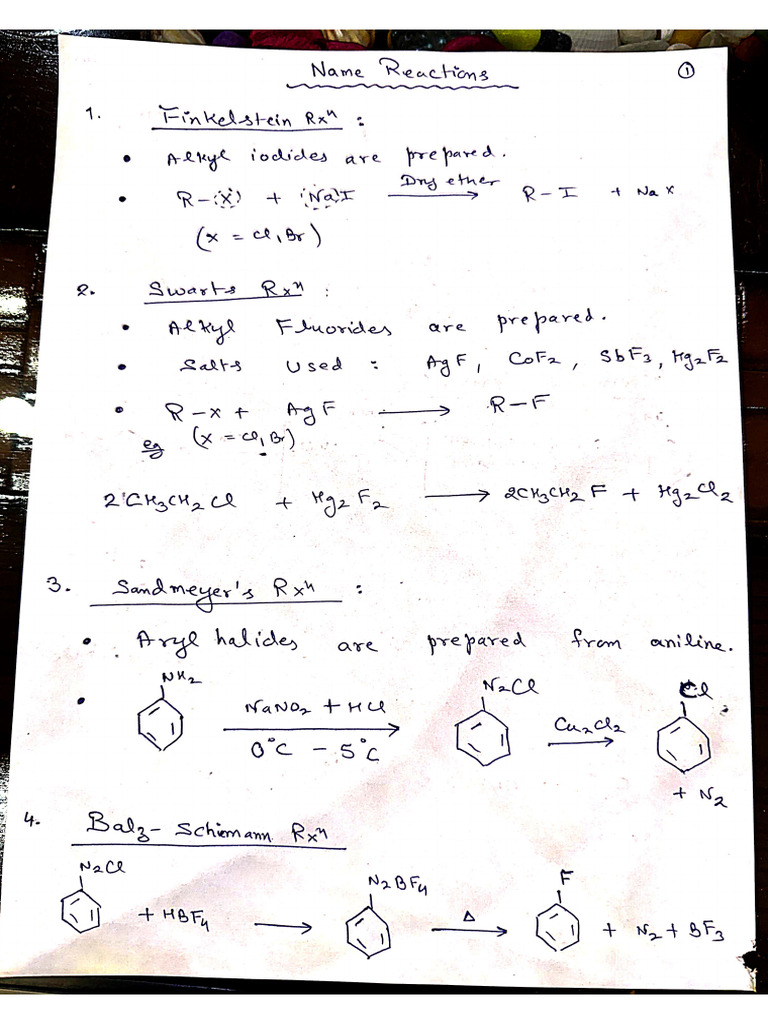 Name Reactions
①
1. Finkelstein Rxⁿ :
• Alkyl iodides are prepared.
• R-X + NaI Dry ether → R-I + NaX
(X = Cl, Br)
2. Swarts Rxⁿ :
• Alkyl Fluorides are prepared.
• Salts used : AgF, CoF2, SbF3, Hg2F2
• R-X + AgF → R-F
eg (X = Cl, Br)
2CH3CH2Cl + Hg2F2 → 2CH3CH2F + Hg2Cl2
3. Sandmeyer's Rxⁿ :
• Aryl halides are prepared from aniline.
NH2 N2Cl Cl
• NaNO2 + HCl → Cu2Cl2 →
0°C - 5°C
+ N2
4. Balz-Schiemann Rxⁿ
N2Cl N2BF4 F
+ HBF4 → Δ → + N2 + BF3